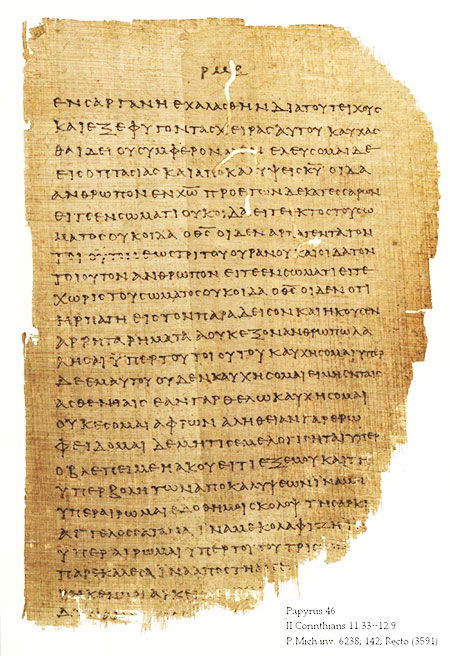 ΕΝϹΑΡΓΑΝΗΕΧΑΛΑϹΘΗΝΔΙΑΤΟΥΤΕΙΧΟΥϹ
ΚΑΙΕΞΕΦΥΓΟΝΤΑϹΧΕΙΡΑϹΑΥΤΟΥΚΑΥΧΑϹ
ΘΑΙΔΕΙΟΥϹΥΜΦΕΡΟΝΜΕΝΕΛΕΥϹΟΜΑΙΔΕ
ΕΙϹΟΠΤΑϹΙΑϹΚΑΙΑΠΟΚΑΛΥΨΕΙϹΚΥ̅ΟΙΔΑ
ΑΝΘΡΩΠΟΝΕΝΧΩ̅ΠΡΟΕΤΩΝΔΕΚΑΤΕϹϹΑΡΩΝ
ΕΙΤΕΕΝϹΩΜΑΤΙΟΥΚΟΙΔΑΕΙΤΕΕΚΤΟϹΤΟΥϹΩ
ΜΑΤΟϹΟΥΚΟΙΔΑΟΘϹ̅ΟΙΔΕΝΑΡΠΑΓΕΝΤΑΤΟΝ
ΤΟΙΟΥΤΟΝΕΩϹΤΡΙΤΟΥΟΥΡΑΝΟΥΚΑΙΟΙΔΑΤΟΝ
ΤΟΙΟΥΤΟΝΑΝΘΡΩΠΟΝΕΙΤΕΕΝϹΩΜΑΤΙΕΙΤΕ
ΧΩΡΙϹΤΟΥϹΩΜΑΤΟϹΟΥΚΟΙΔΑΟΘϹ̅ΟΙΔΕΝΟΤΙ
ΗΡΠΑΓΗΕΙϹΤΟΝΠΑΡΑΔΕΙϹΟΝΚΑΙΗΚΟΥϹΕΝ
ΑΡΡΗΤΑΡΗΜΑΤΑΑΟΥΚΕΞΟΝΑΝΘΡΩΠΩΛΑ
ΛΗϹΑΙΫΠΕΡΤΟΥΤΟΙΟΥΤΟΥΚΑΥΧΗϹΟΜΑΙΥΠΕΡ
ΔΕΕΜΑΥΤΟΥΟΥΔΕΝΚΑΥΧΗϹΟΜΑΙΕΙΜΗΕΝΤΑΙϹ
ΑϹΘΕΝΕΙΑΙϹΕΑΝΓΑΡΘΕΛΩΚΑΥΧΗϹΟΜΑΙ
ΟΥΚΕϹΟΜΑΙΑΦΡΩΝΑΛΗΘΕΙΑΝΓΑΡΕΡΩ
ΦΕΙΔΟΜΑΙΔΕΜΗΤΙϹΕΜΕΛΟΓΙϹΗΤΑΙΥΠΕΡ
ΟΒΛΕΠΕΙΜΕΗΑΚΟΥΕΙΤΙΕΞΕΜΟΥΚΑΙΤΗ
ΫΠΕΡΒΟΛΗΤΩΝΑΠΟΚΑΛΥΨΕΩΝΙΝΑΜΗ
ΥΠΕΡΑΙΡΩΜΑΙΕΔΟΘΗΜΟΙϹΚΟΛΟΨΤΗϹΑΡΚΙ
ΑΓΓΕΛΟϹϹΑΤΑΝΑΙΝΑΜΕΚΟΛΑΦΙΖΗΙ
ΫΠΕΡΑΙΡΩΜΑΙΥΠΕΡΤΟΥΤΟΥΤΡΙϹ
ΠΑΡΕΚΑΛΕϹΑΙΝΑΑΠΟϹΤΗΑΠΕ
ΑΡΚΕ
Papyrus 46
II Corinthians 11.33-12.9
P.Mich.inv. 6238; 142, Recto (3591)